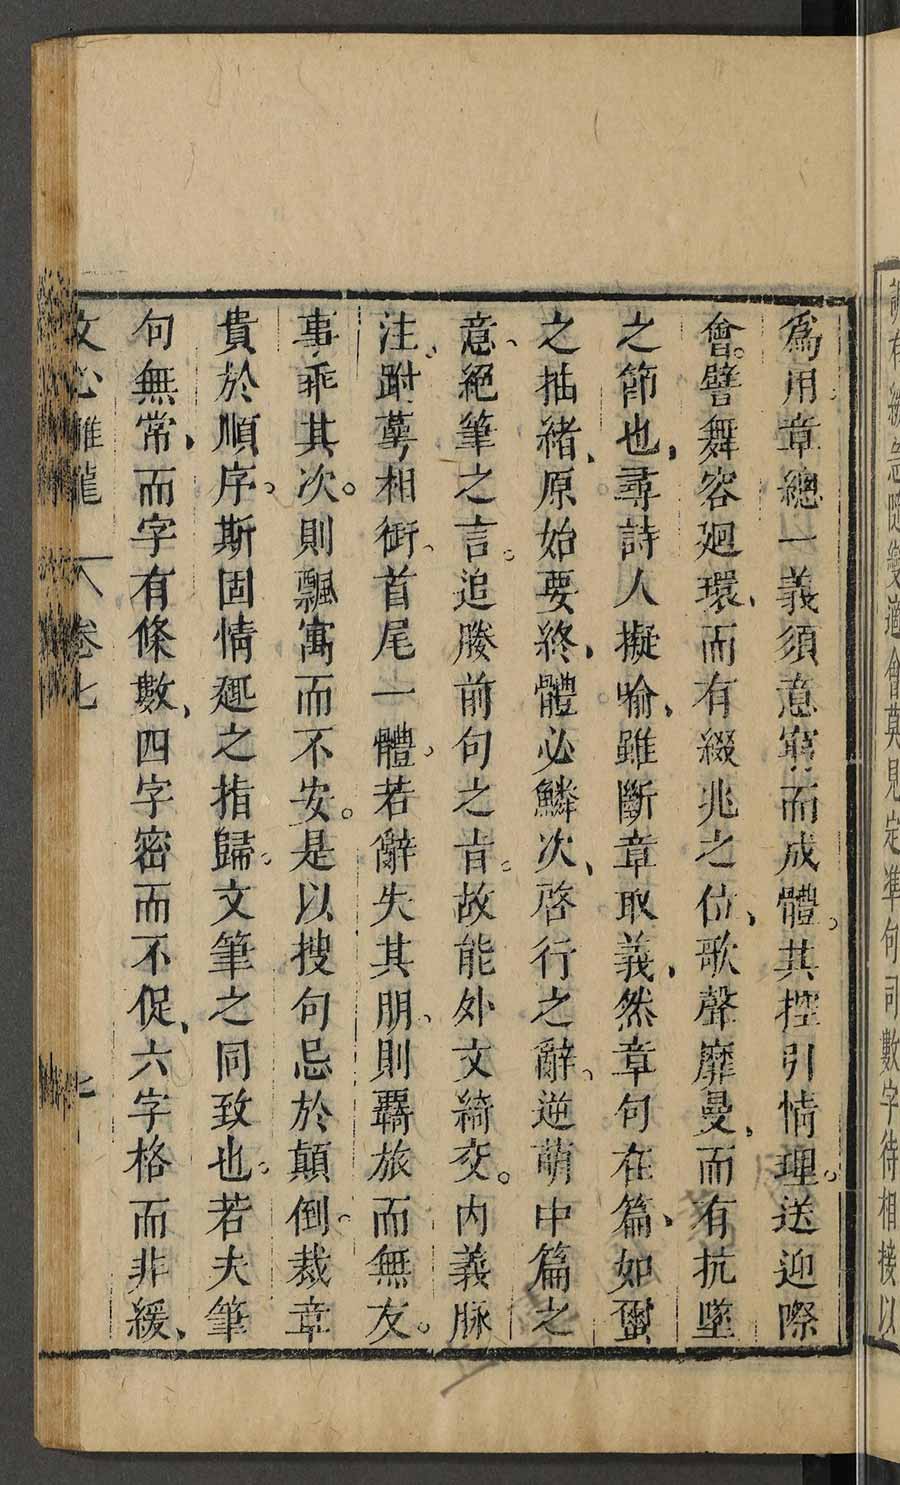 調有緩急隨變適會莫見定準句司數字待相接以
爲用章總一義須意窮而成體。其控引情理。送迎際
會。譬舞容廻環、而有綴兆之位、歌聲靡曼、而有抗墜
之節也、尋詩人擬喻、雖斷章取義、然章句在篇、如蠒
之抽緒、原始要終、體必鱗次、啓行之辭、逆萌中篇之
意、絕筆之言。追媵前句之旨。故能外文綺交。內義脉
注、跗蕚相銜、首尾一體、若辭失其朋、則羈旅而無友。
事乖其次。則飄寓而不安。是以搜句忌於顛倒、裁章
貴於順序。斯固情趣之指歸。文筆之同致也。若夫筆
句無常、而字有條數、四字密而不促、六字格而非緩、
文心雕龍 卷七 七